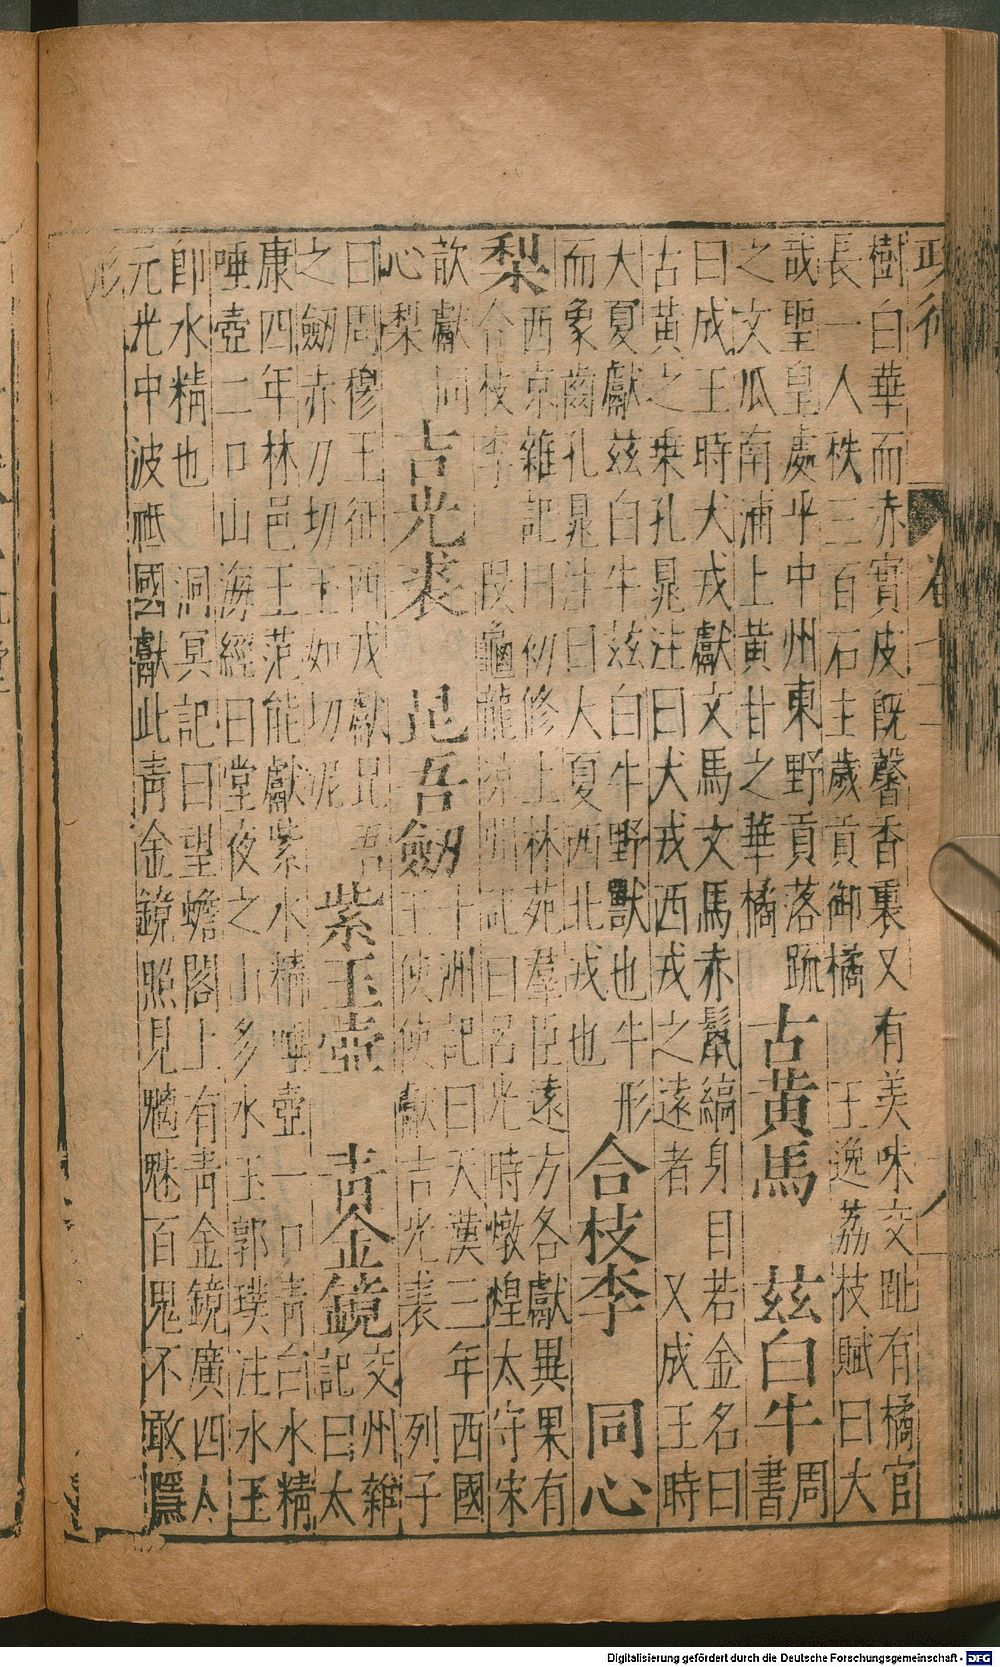 樹白華而赤實皮既馨香裏又有美味交趾有橘官
長一人秩三百石主歲貢御橘 王逸荔枝賦曰大
哉聖皇處乎中州東野貢落疏
之文瓜南浦上黃甘之華橘
古黃馬 茲白牛
周
書
曰成王時犬戎獻文馬文馬赤鬣縞身目若金名曰
古黃之乗孔晁注曰犬戎西戎之遠者 又成王時
大夏獻茲白牛茲白牛野獸也牛形
而象齒孔晁注曰大夏西北戎也
合枝李 同心
梨
西京雜記曰初修上林苑羣臣遠方各獻異果有
合枝李 段龜龍涼州記曰呂光時燉煌太守宋
歆獻同
心梨
吉光裘 昆吾劒
十洲記曰天漢三年西國
王使使獻吉光裘 列子
曰周穆王征西戎獻昆吾
之劒赤刀切玉如切泥
紫玉壺 青金鏡
交州雜
記曰太
康四年林邑王范能獻紫水精唾壺一口青白水精
唾壺二口山海經曰堂夜之山多水玉郭璞注水玉
即水精也 洞冥記曰望蟾閣上有青金鏡廣四人
元光中波祗國獻此青金鏡照見魑魅百鬼不敢隱
形
Digitalisierung gefördert durch die Deutsche Forschungsgemeinschaft - DFG